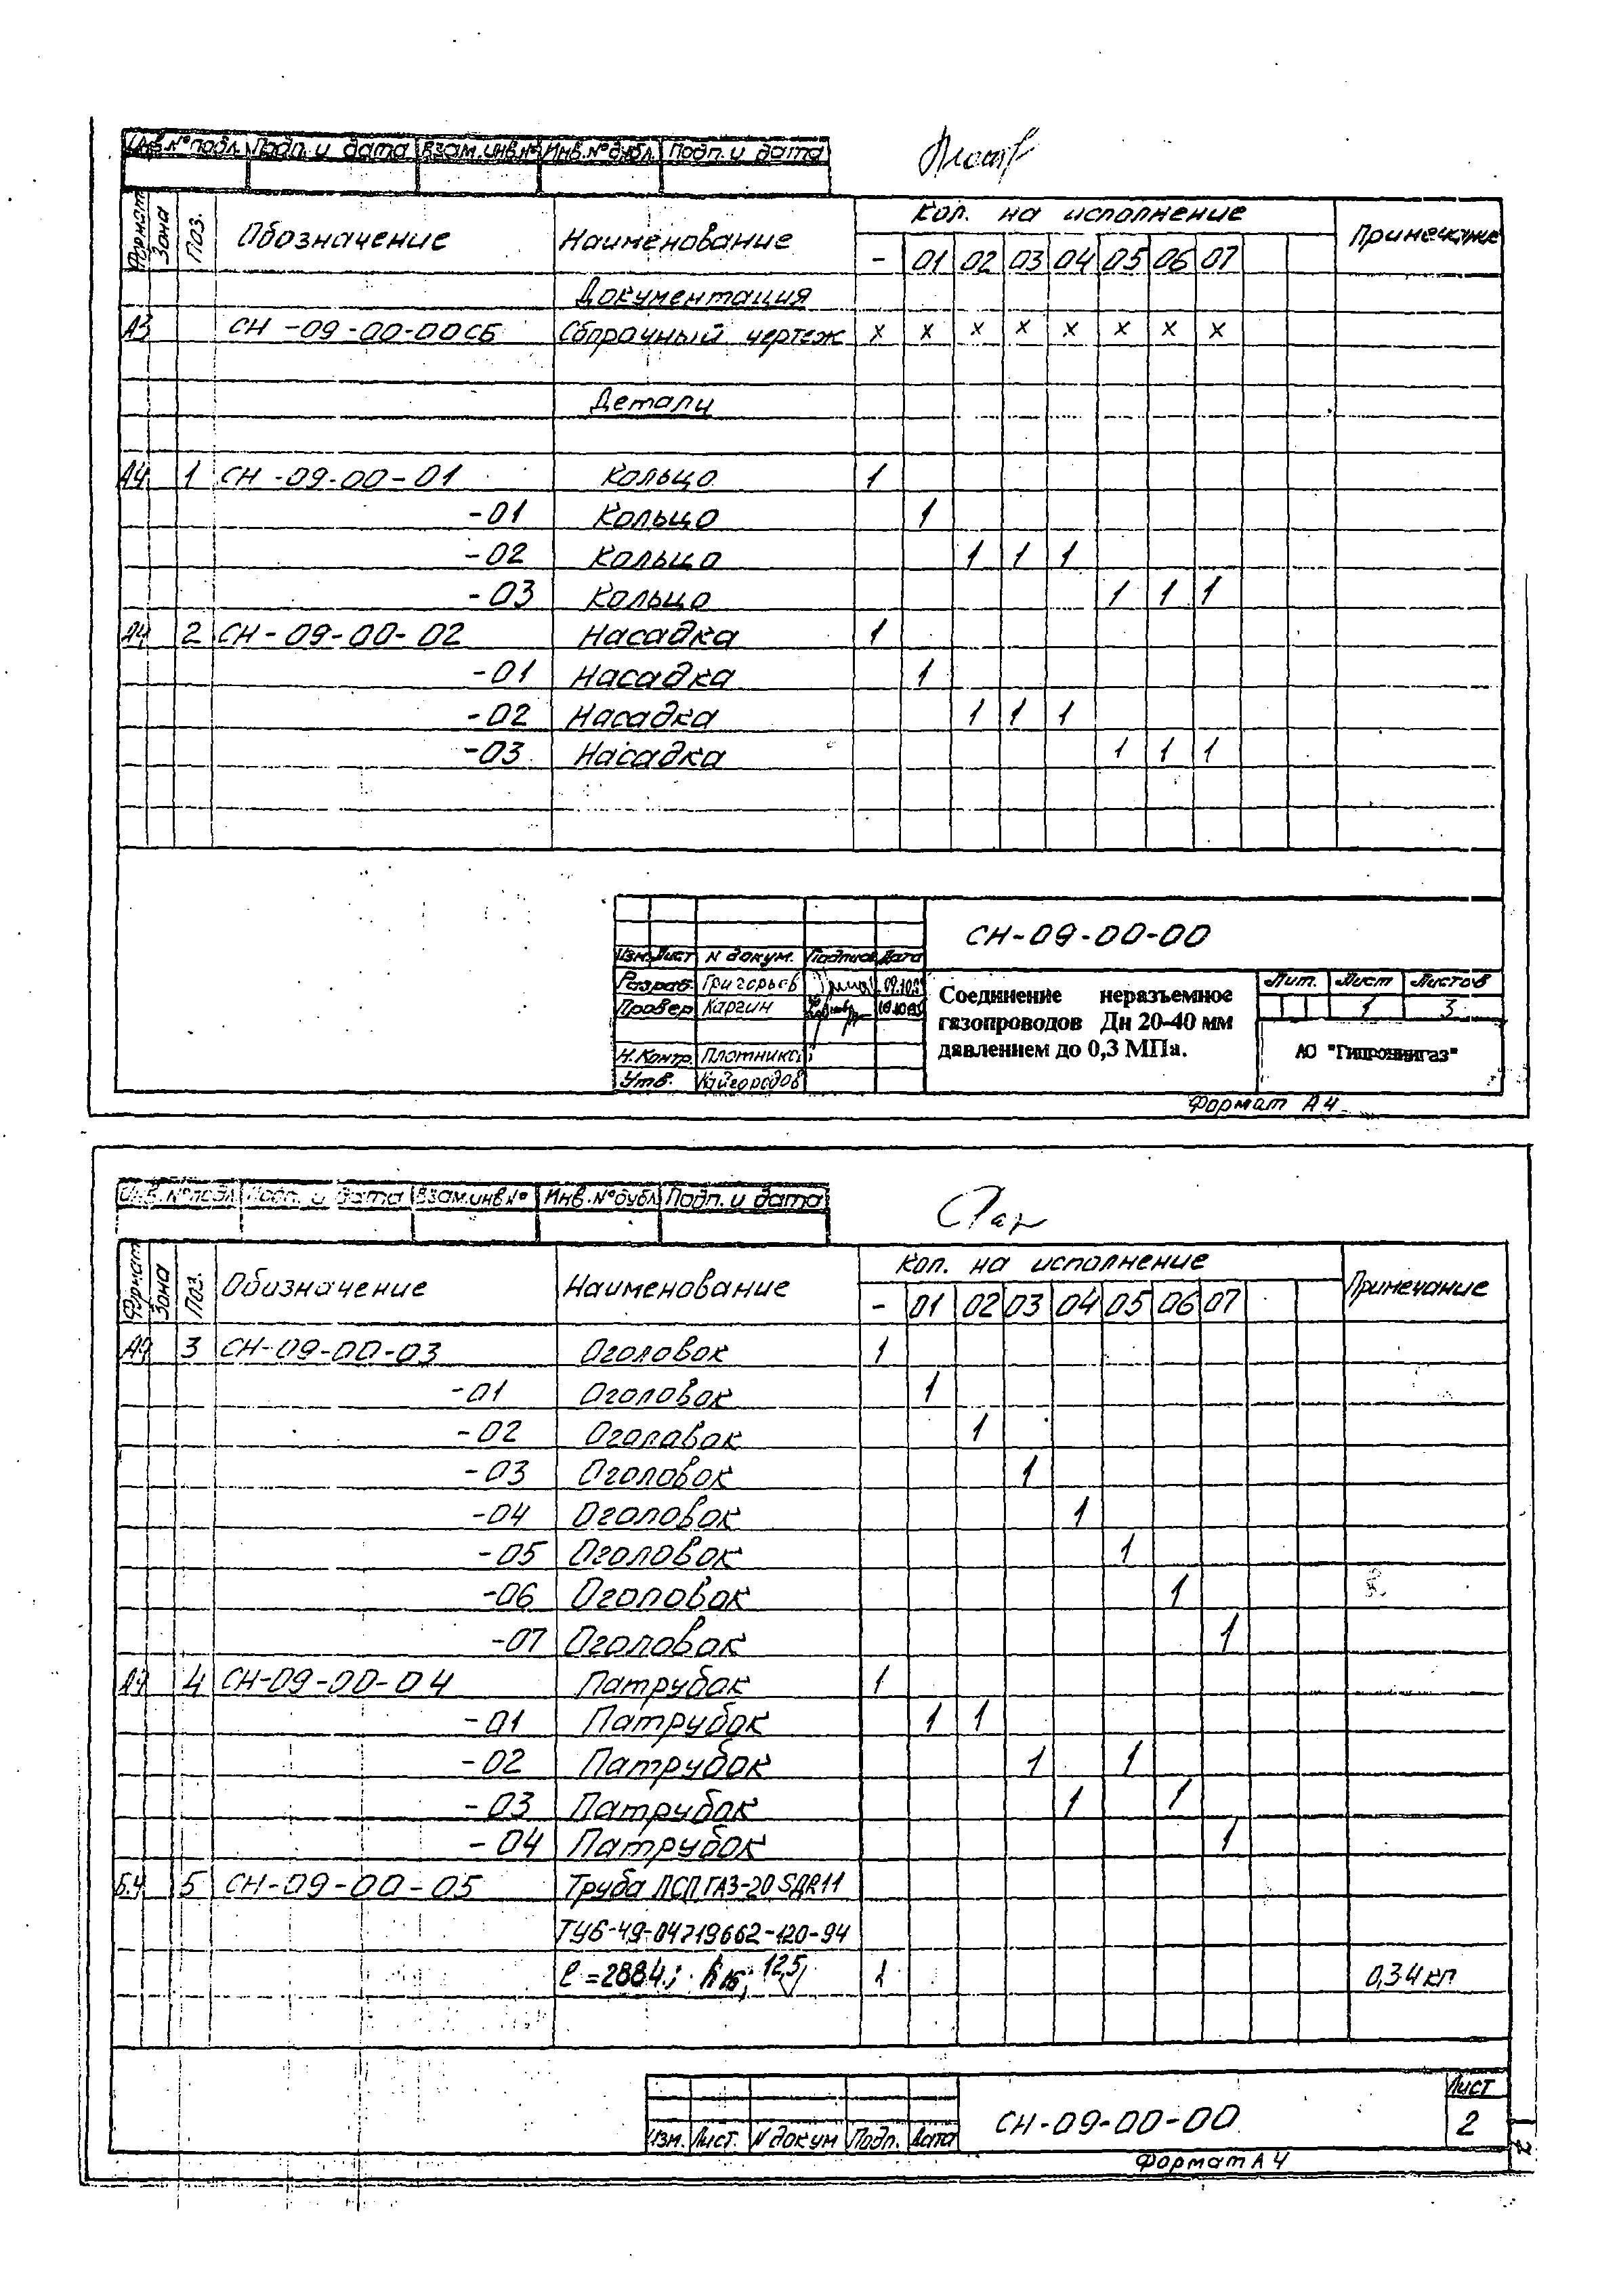 Инв.№подл. Подп. и дата Взам.инв.№ Инв.№дубл. Подп. и дата
Формат Зона Поз. Обозначение Наименование Кол. на исполнение Примечание
- 01 02 03 04 05 06 07
Документация
А3 СН-09-00-00СБ Сборочный чертеж х х х х х х х х
Детали
А4 1 СН-09-00-01 Кольцо 1
-01 Кольцо 1
-02 Кольцо 1 1 1
-03 Кольцо 1 1 1
А4 2 СН-09-00-02 Насадка 1
-01 Насадка 1
-02 Насадка 1 1 1
-03 Насадка 1 1 1
СН-09-00-00
Изм. Лист N докум. Подпись Дата
Разраб. Григорьев
Провер Каргин
Н.Контр. Плотников
Утв. Кайгородов
Соединение неразъемное
газопроводов Дн 20-40 мм
давлением до 0,3 МПа.
Лит. Лист Листов
1 3
АО "Гипрониигаз"
Формат А4
Инв.№подл. Подп. и дата Взам.инв№ Инв.№дубл Подп. и дата
Формат Зона Поз. Обозначение Наименование Кол. на исполнение Примечание
- 01 02 03 04 05 06 07
А4 3 СН-09-00-03 Оголовок 1
-01 Оголовок 1
-02 Оголовок 1
-03 Оголовок 1
-04 Оголовок 1
-05 Оголовок 1
-06 Оголовок 1
-07 Оголовок 1
А4 4 СН-09-00-04 Патрубок 1
-01 Патрубок 1 1
-02 Патрубок 1 1
-03 Патрубок 1 1
-04 Патрубок 1
Б.Ч 5 СН-09-00-05 Труба ПСП ГАЗ-20 SДR11
ТУ6-49-04719662-120-94
ℓ=2884; h16; 12,5 1 0,34кг
Изм. Лист. N докум Подп. Дата
СН-09-00-00
Лист
2
Формат А4